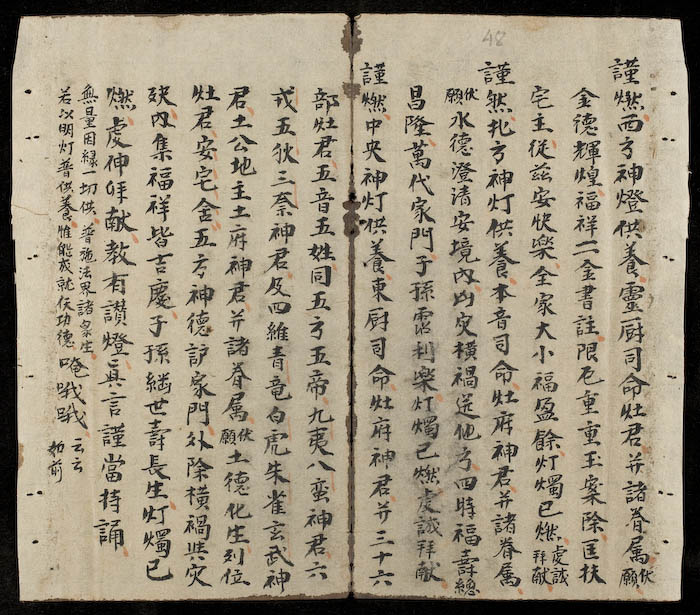 48
謹燃西方神燈供養靈厨司命灶君并諸眷属伏願
金德輝煌福祥二金書註限厄重重玉案除匡扶
宅主從兹安快樂全家大小福盈餘灯燭已燃虔誠拜献
謹然北方神灯供養本音司命灶府神君并諸眷属
伏願水德澄清安境內凶灾横禍迸他方四時福壽總
昌隆萬代家門子孫霑利樂灯燭已燃虔誠拜献
謹燃中央神灯供養東厨司命灶府神君并三十六
部灶君五音五姓同五方五帝九夷八蛮神君六
戎五狄三秦神君及四維青竜白虎朱雀玄武神
君土公地主土府神君并諸眷属伏願土德化生到位
灶君安宅金五方神德護家門外除横禍共灾
殃內集福祥皆吉慶子孫継世壽長生灯燭已
燃虔神保献教有讃燈真言謹當持誦
無量因緣一切供普施法界諸衆生
若以明灯普供養惟能成就仸功德唵哦哦云云如前